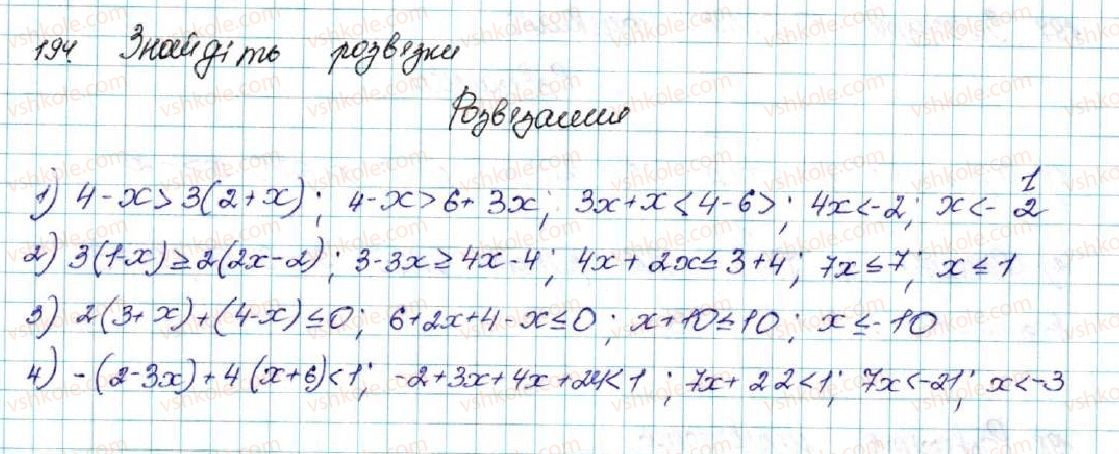 194. Знайдіть розвязки
Розвязання
1) 4-x>3(2+x); 4-x>6+3x; 3x+x<4-6>; 4x<-2; x<-1/2
2) 3(1-x)≥2(2x-2); 3-3x≥4x-4; 4x+2x≤3+4; 7x≤7; x≤1
3) 2(3+x)+(4-x)≤0; 6+2x+4-x≤0; x+10≤10; x≤-10
4) -(2-3x)+4(x+6)<1; -2+3x+4x+24<1; 7x+22<1; 7x<-21; x<-3